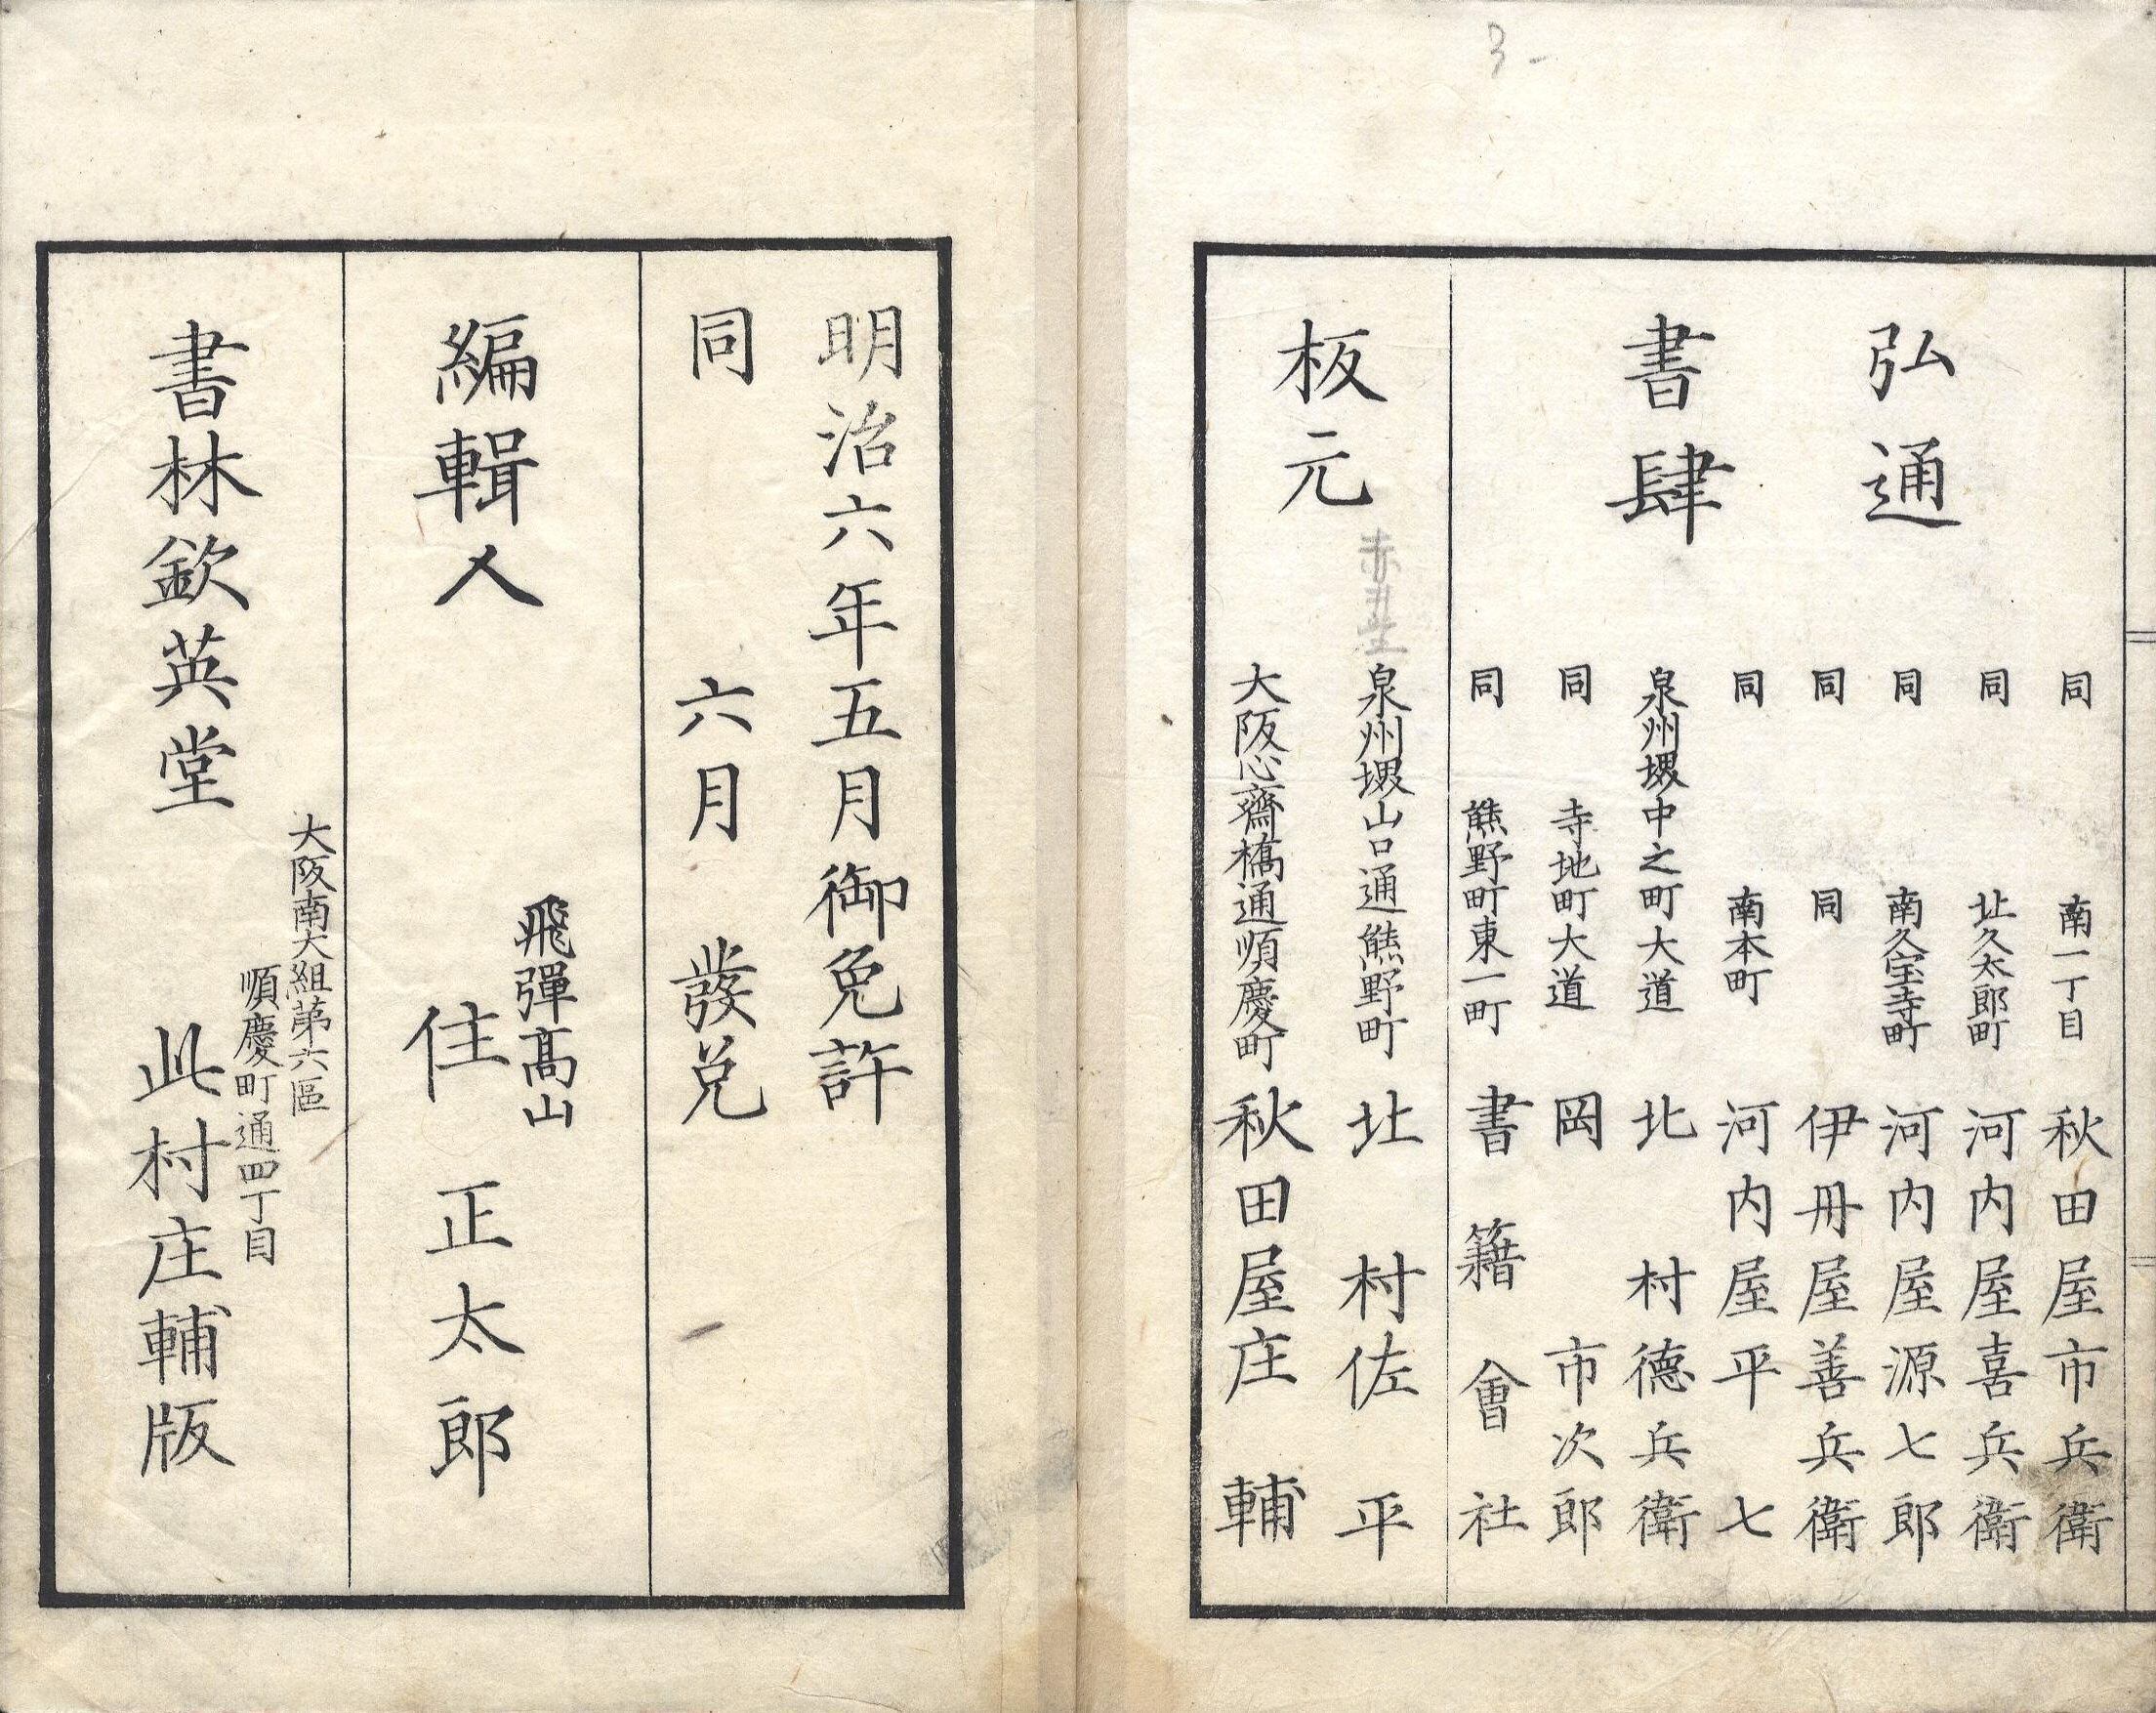 弘通
書肆
同 南一丁目 秋田屋市兵衛
同 北久太郎町 河内屋喜兵衛
同 南久宝寺町 河内屋源七郎
同 同 伊丹屋善兵衛
同 南本町 河内屋平七
泉州堺中之町大道 北村徳兵衛
同 寺地町大道 岡市次郎
同 熊野町東一町 書籍會社
板元
泉州堺山口通熊野町 北村佐平
大阪心齋橋通順慶町 秋田屋庄輔
3-
明治六年五月御免許
同 六月 發兌
編輯人
飛彈髙山
住正太郎
書林欽英堂
大阪南大組苐六區
順慶町通四丁目
此村庄輔版